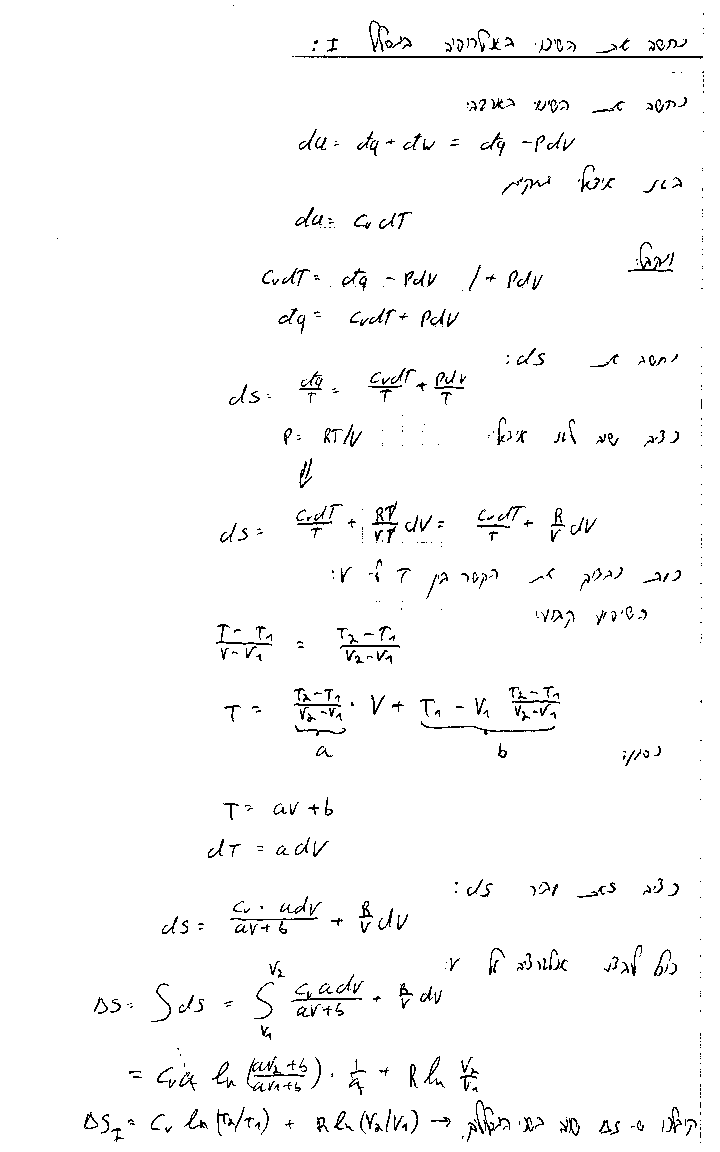 נחשב את השינוי באנטרופיה במסלול I:
נחשב את השינוי באנרגיה
du = đq + đw = đq - Pdv
בגז אידאלי מתקיים
du = CvdT
ונקבל:
CvdT = đq - Pdv / + Pdv
đq = CvdT + Pdv
נחשב את ds:
ds = đq/T = CvdT/T + Pdv/T
נציב שוב לגז אידאלי
P = RT/V
⇓
ds = CvdT/T + RT/VT dV = CvdT/T + R/V dV
את הקשר בין T ל-V:
T-T₁/V-V₁ = T₂-T₁/V₂-V₁
T = T₂-T₁/V₂-V₁ · V + T₁ - V₁ T₂-T₁/V₂-V₁
a b
T = av + b
dT = adV
נציב זאת ds:
ds = Cv · adv/av+b + R/V dv
V
ΔS = ∫ds = ∫ V₁ V₂ Cv adv/av+b + R/V dv
= Cv a ln (av₂+b/av₁+b) · 1/a + R ln V₂/V₁
ΔS_I = Cv ln(T₂/T₁) + R ln(V₂/V₁) → קיבלנו ש- ΔS